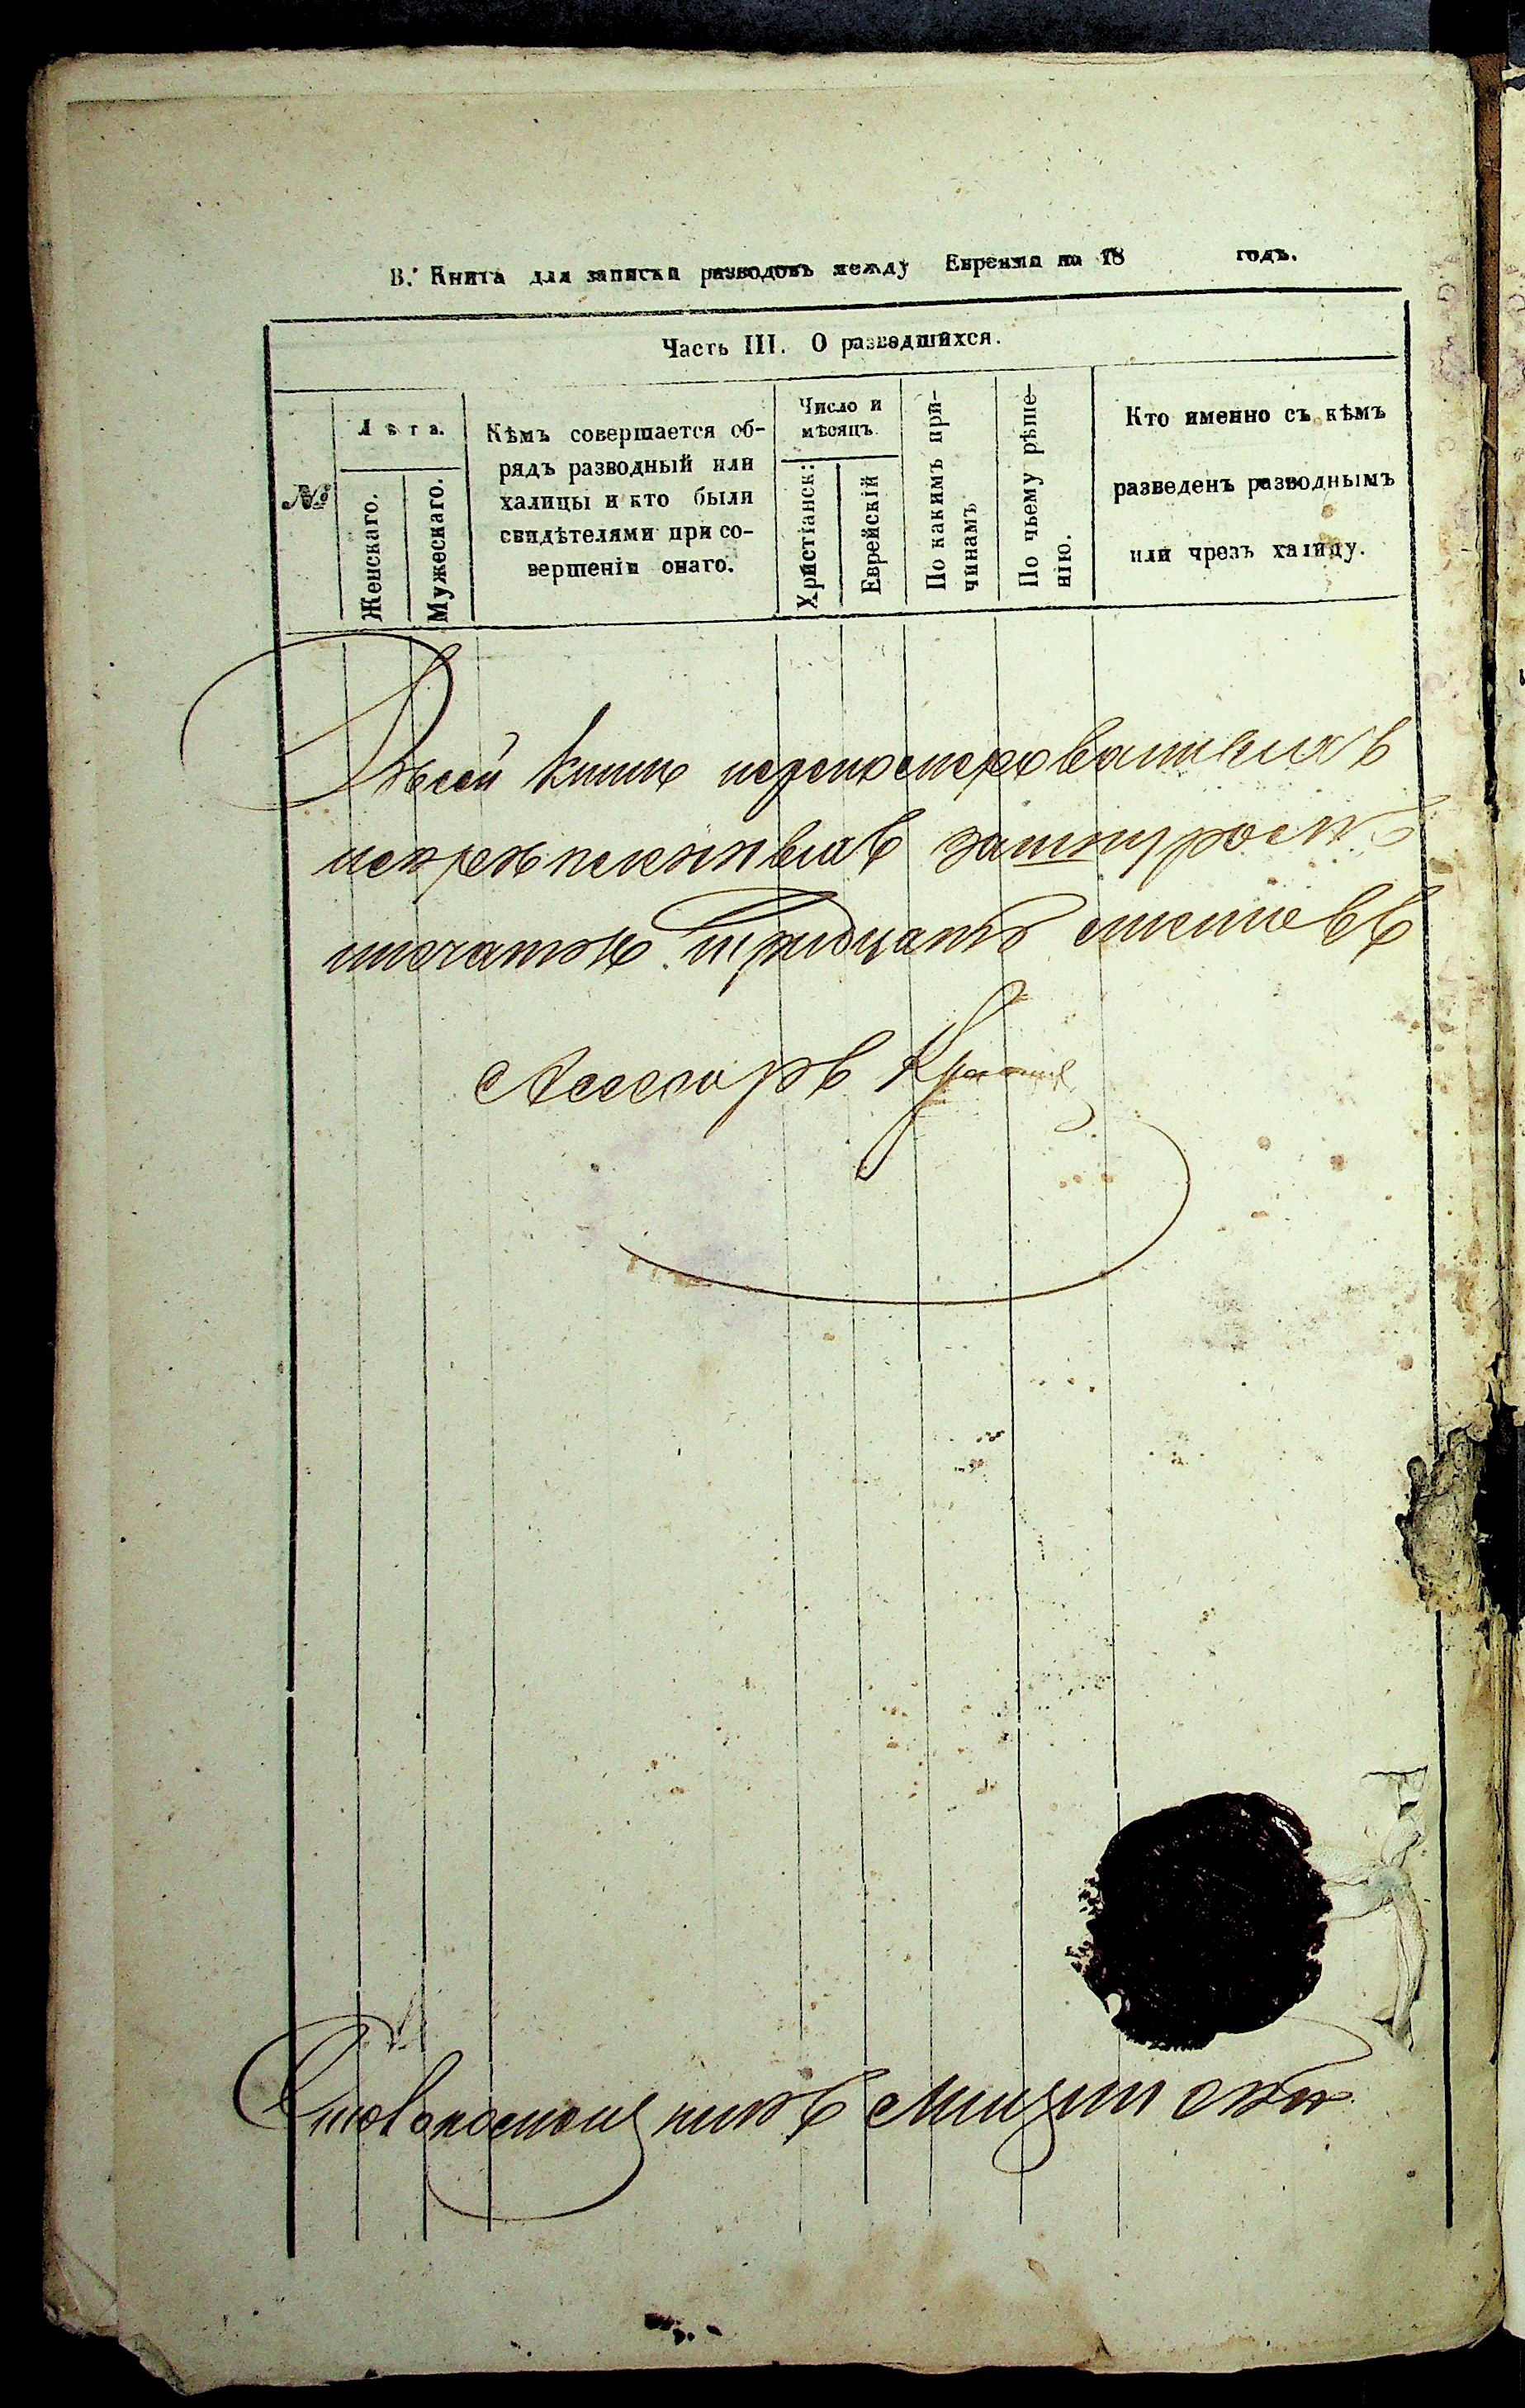 В. Книга для записки разводовъ между Евреями на 18 годъ.
Часть III. О разведшихся.
№
Лѣта.
Женскаго.
Мужескаго.
Кѣмъ совершается об-
рядъ разводный или
халицы и кто были
свидѣтелями при со-
вершеніи онаго.
Число и
мѣсяцъ.
Христіанск:
Еврейскій
По какимъ при-
чинамъ
По чьему рѣше-
нію.
Кто именно съ кѣмъ
разведенъ разводнымъ
или чрезъ халицу.
Въ сей книгѣ перенумерованныхъ
искрепленныхъ зашнуромъ
печатью тридцать листовъ
Ассесоръ
Столоначальникъ